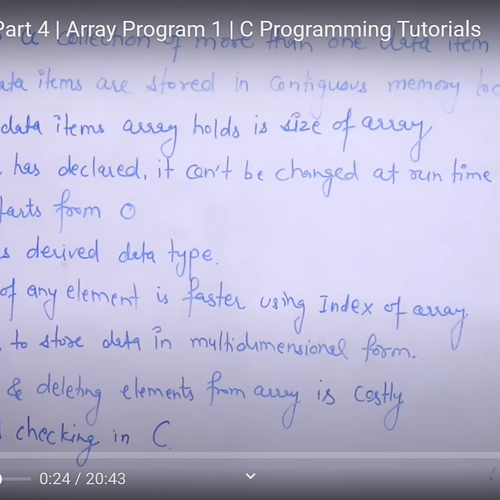 Part 4 | Array Program 1 | C Programming Tutorials
a collection of more than one data item
data items are stored in contiguous memory loc
data items array holds is size of array
has declared, it can't be changed at run time
tarts from 0
s derived data type.
of any element is faster using Index of array
to store data in multidimensional form.
& deleting elements from array is costly
checking in C.
0:24 / 20:43